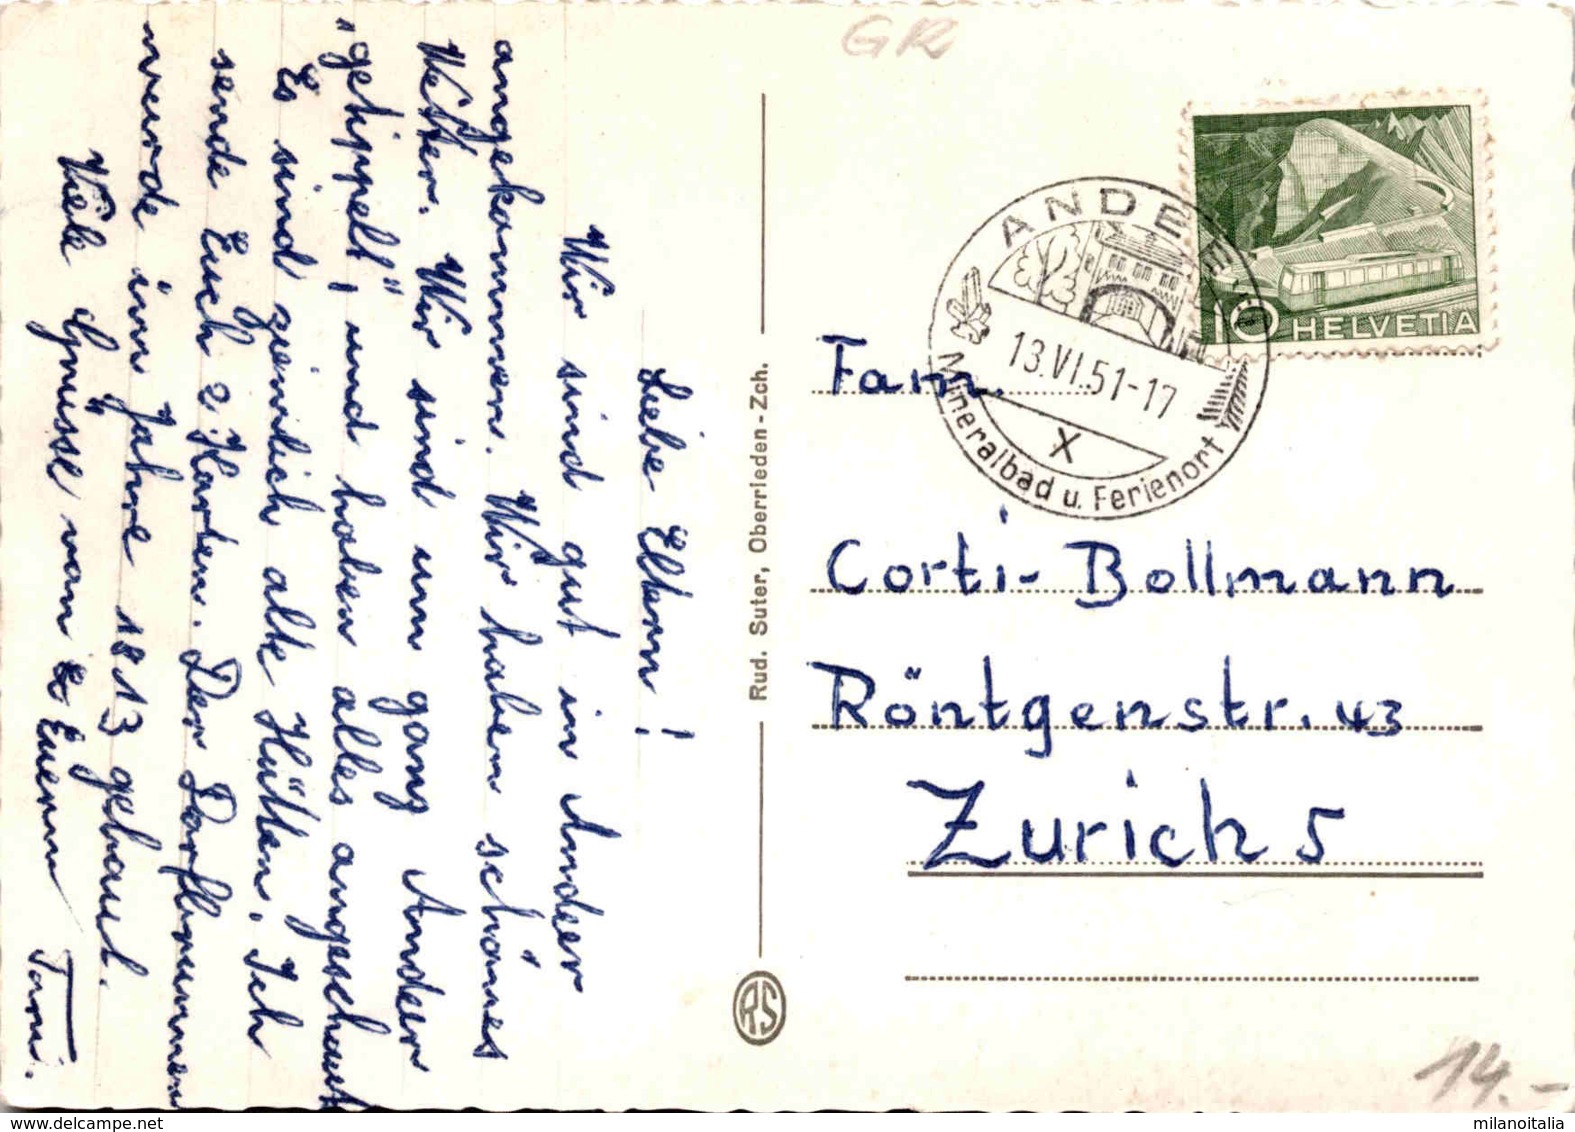 Liebe Eltern!
Wir sind gut in Andeer
angekommen. Wir haben schönes
Wetter. Wir sind um ganz Andeer
"getippelt" und haben alles angeschaut
Es sind ziemlich alte Hütten. Ich
sende Euch 2 Karten. Der Dorfbrunnen
wurde im Jahre 1813 gebaut.
Viele Grüsse von Euerm
Tomi.
Rud. Suter, Oberrieden - Zch.
RS
GR
ANDEER
13.VI.51-17
X
Mineralbad u. Ferienort
10 HELVETIA
Fam.
Corti-Bollmann
Röntgenstr. 43
Zürich 5
14.-
milanoitalia
www.delcampe.net